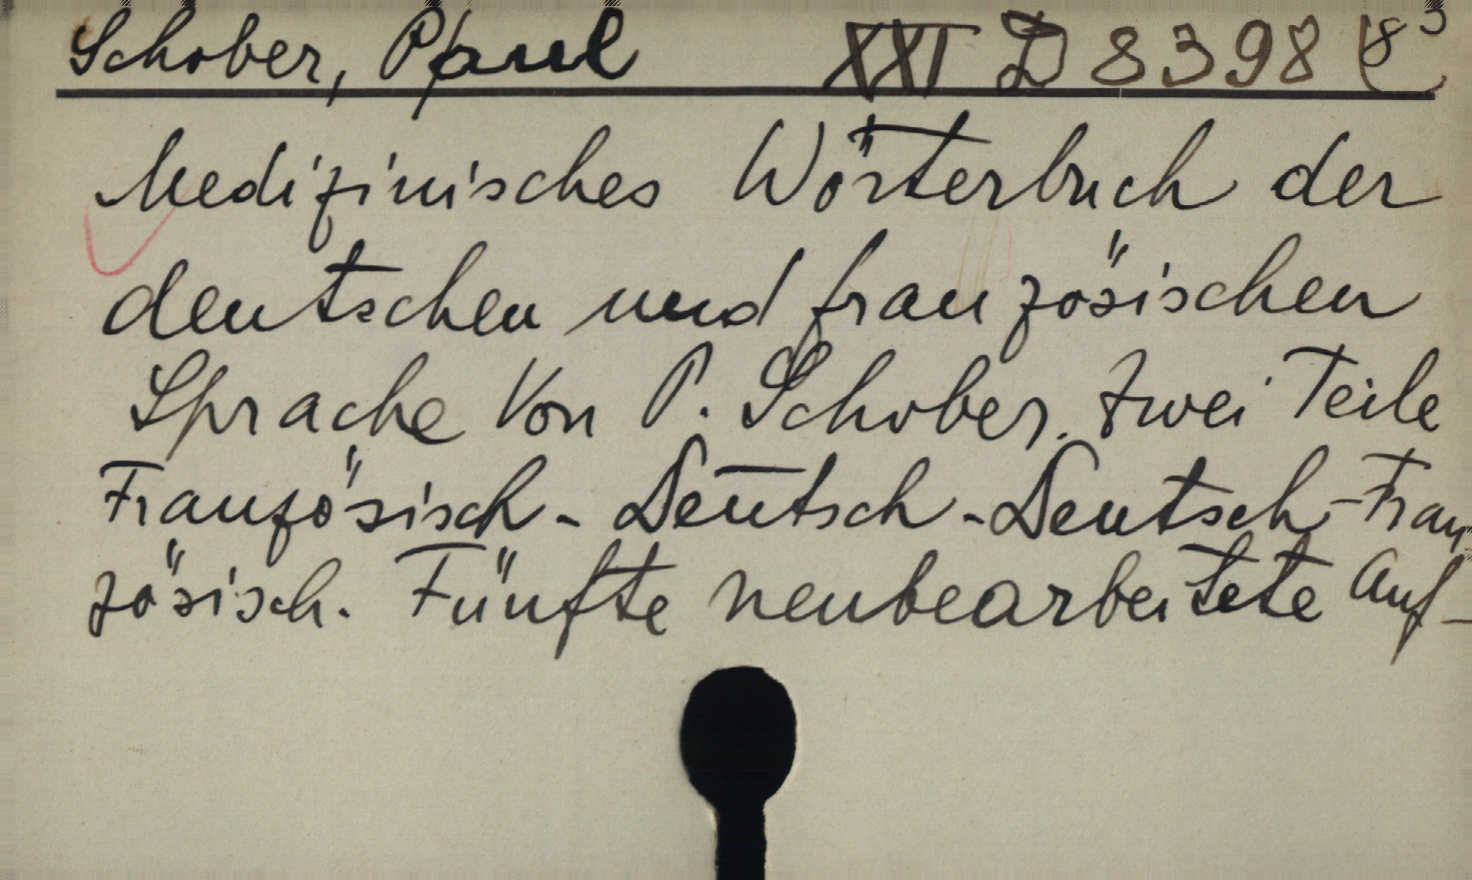 Schober, Paul XXI D 8398
Medizinisches Wörterbuch der
deutschen und französischen
Sprache Von P. Schober. Zwei Teile
Französisch - Deutsch - Deutsch - Fran
zösisch. Fünfte neubearbeitete Auf-